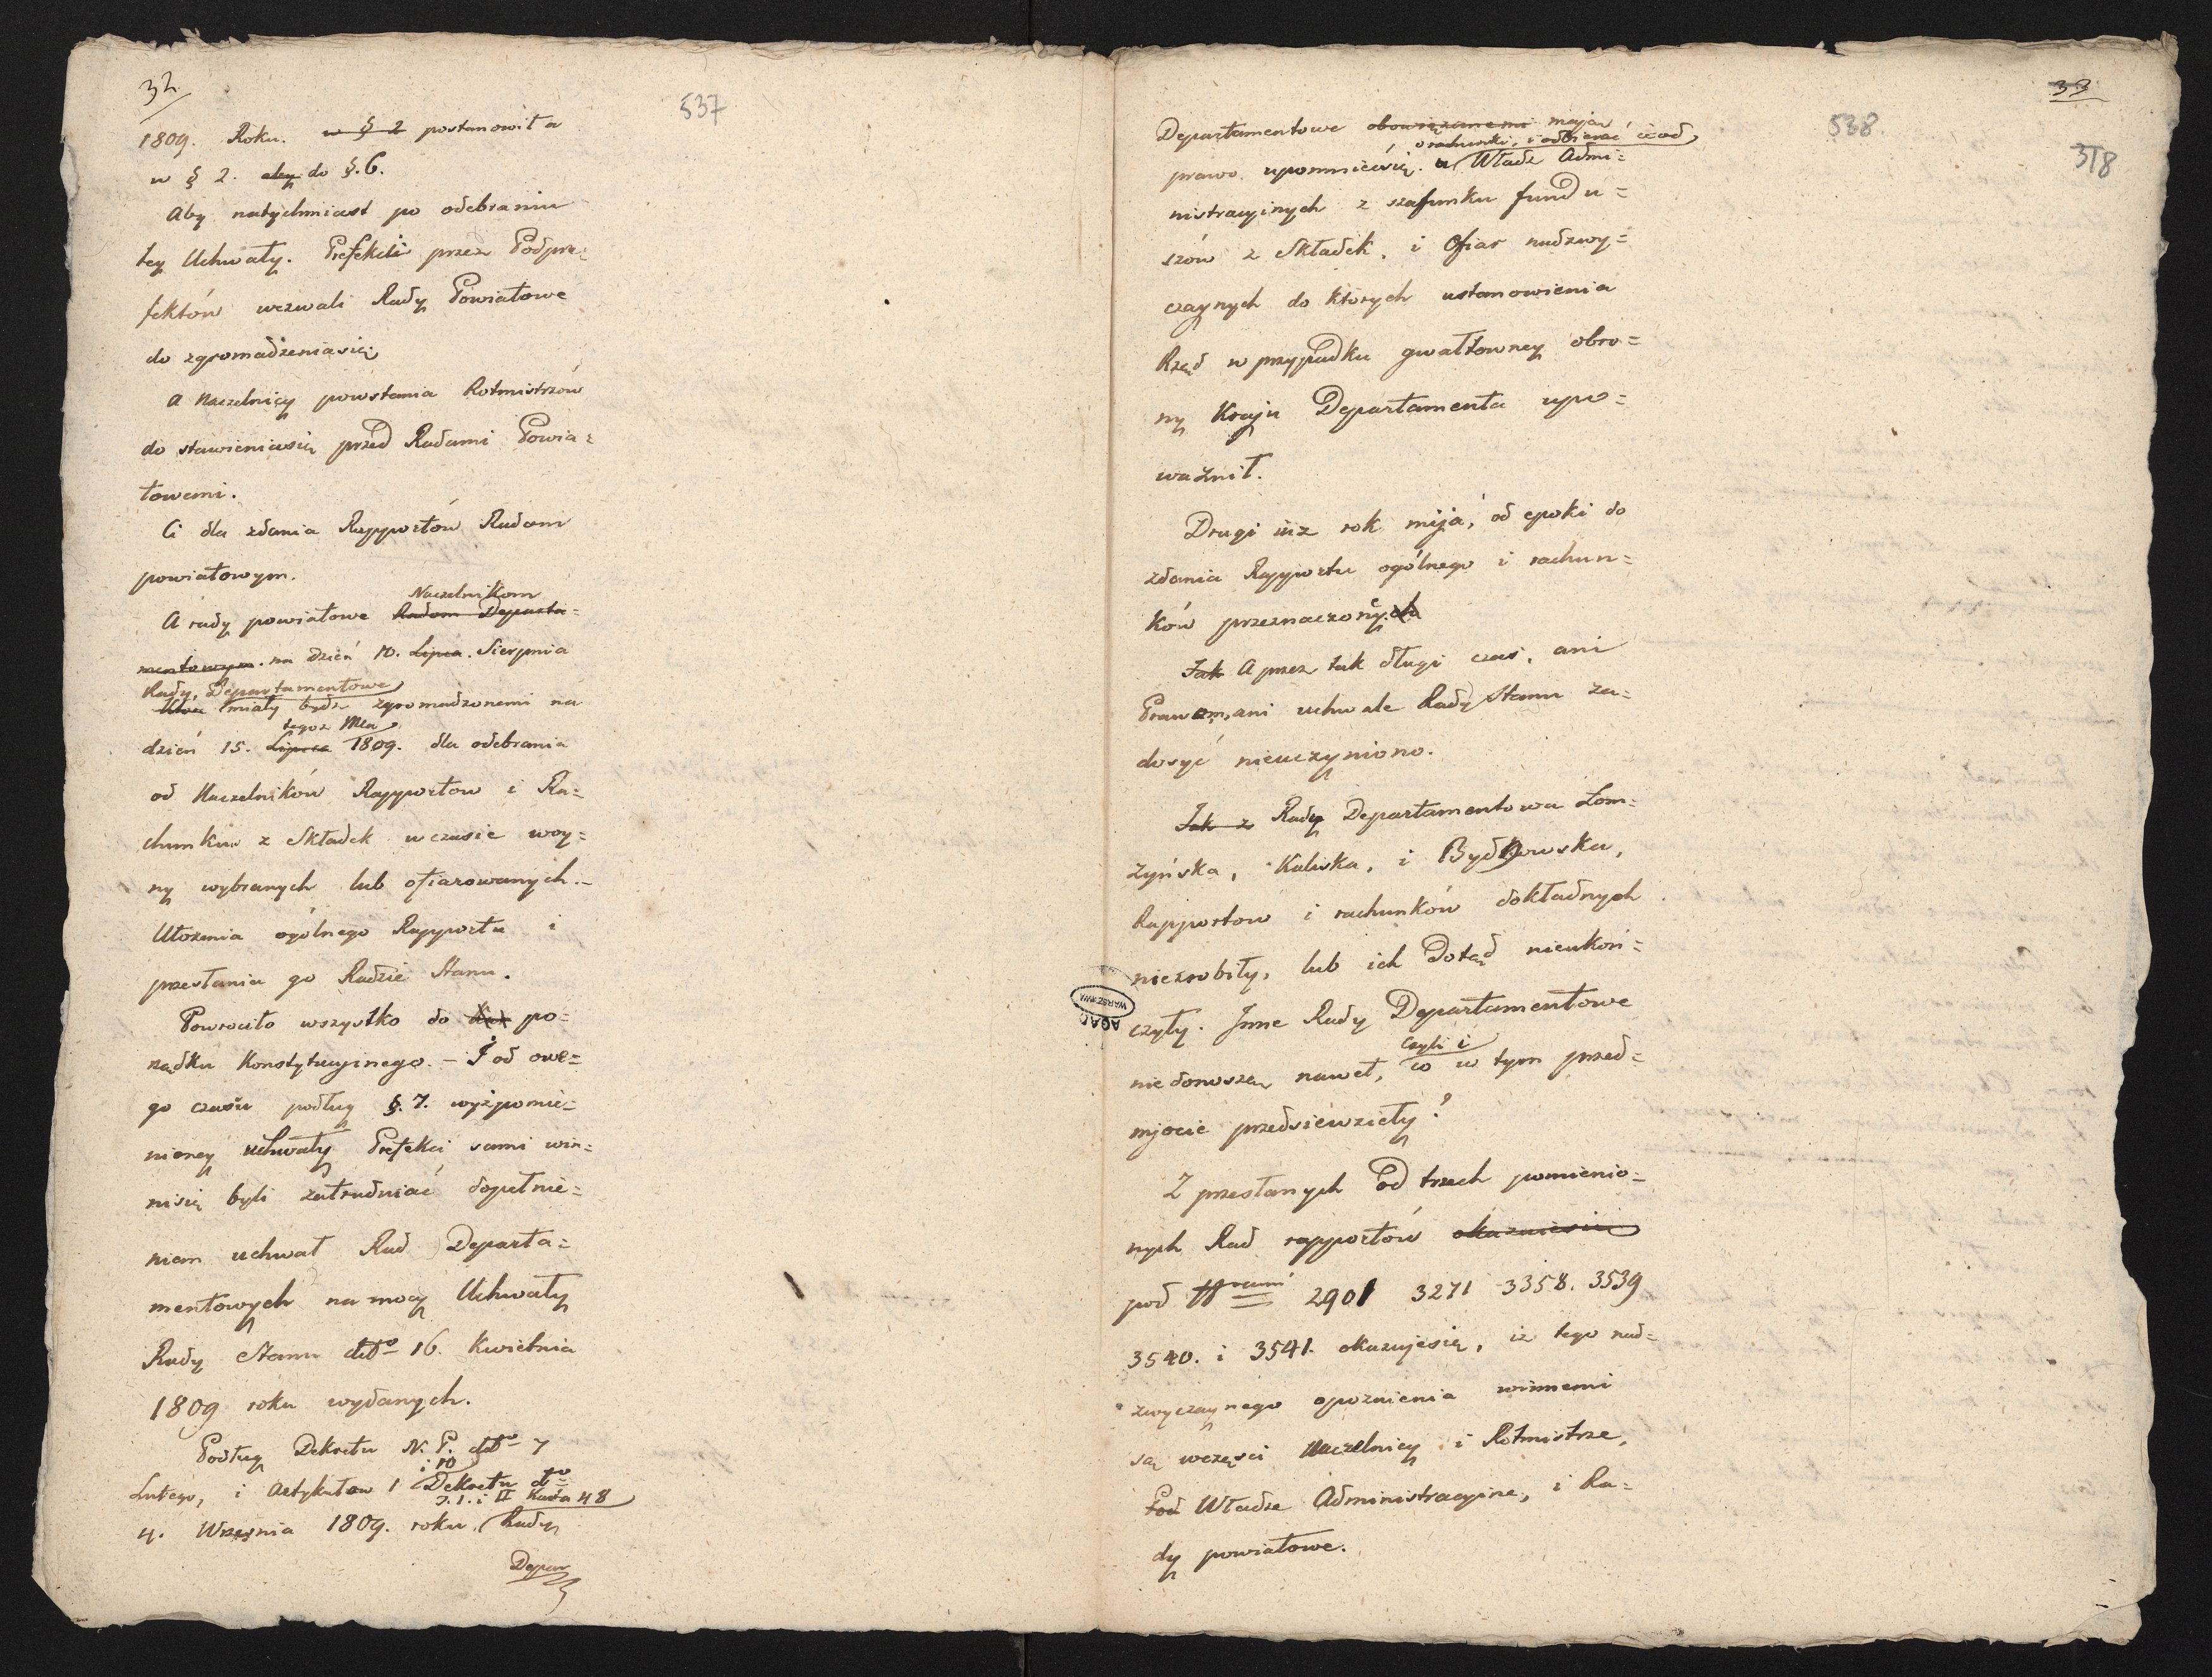 32
537
1809. Roku. w § 2 postanowiła
w § 2. aby do §. 6.
Aby natychmiast po odebraniu
tey Uchwały. Prefekci przez Podpre=
fektów wezwali Rady Powiatowe
do zgromadzeniasię,
A Naczelnicy powstania Rotmistrzów
do stawieniasię przed Radami Powia=
towemi.
Ci dla zdania Rapportów Radom
powiatowym.
Naczelnikom
A rady powiatowe Radom Departa=
mentowym. na dzień 10. Lipca. Sierpnia
Rady, Departamentowe
miały bydź zgromadzonemi na
tegoż Mca
dzień 15. Lipca 1809. dla odebrania
od Naczelników Rapportow i Ra=
chunku z Składek w czasie woy=
ny wybranych lub ofiarowanych.
Ułożenia ogólnego Rapportu i
przesłania go Radzie Stanu.
Powrociło wszystko do po=
rządku Konstytucyinego. – I od owe=
go czasu podług §. 7. wyżpomie=
nioney uchwały Prefekci sami win=
nisię byli zatrudniać dopełnie=
niem uchwał Rad Departa=
mentowych na mocy Uchwały
Rady Stanu dto 16. Kwietnia
1809 roku wydanych.
Podług Dekretu N. P. dto 7
i 10
Lutego, i Artykułow 1 Dekretu dto
J. 1. i II Karta 48
4. Września 1809. roku. Rady
Depar
33
538.
318
Departamentowe obowiązanemi mają
o rachunki, i odbierać ie od
prawo upomniećsię. u Władz Admi=
nistracyinych z szafunku fundu=
szów z Składek, i Ofiar nadzwy=
czaynych do ktorych ustanowienia
Rząd w przypadku gwałtowney obro=
ny Kraju Departamenta upo=
ważnił.
Drugi iuż rok mija, od epoki do
zdania Rapportu ogólnego i rachun=
ków przeznaczoney.
Jak A przez tak długi czas, ani
Prawom, ani uchwale Rady Stanu za=
dosyć nieuczyniono.
Jak z Rady Departamentowa Łom=
żyńska, Kaliska, i Bydgowska,
Rapportow i rachunków dokładnych
niezrobiły, lub ich Dotąd nieukoń=
czyły. Inne Rady Departamentowe
czyli i
nie donoszą nawet, co w tym przed=
mjocie przedsiewzieły?
Z przesłanych Od trzech pomienio=
nych Rad rapportów okazuiesię
pod Nrami 2901 3271 3358. 3539
3540. i 3541. okazujesię, iż tego nad=
zwyczaynego opoznienia winnemi
są wczęsci Naczelnicy i Rotmistrze,
Pod Władze Administracyine, i Ra=
dy powiatowe.
AGAD
WARSZAWA